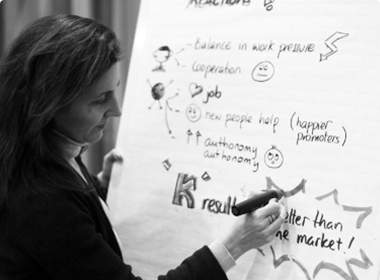 Reactions
- Balance in work pressure
- Cooperation
job
- new people help (happier promoters)
authonomy
authonomy
K result
better than
the market!